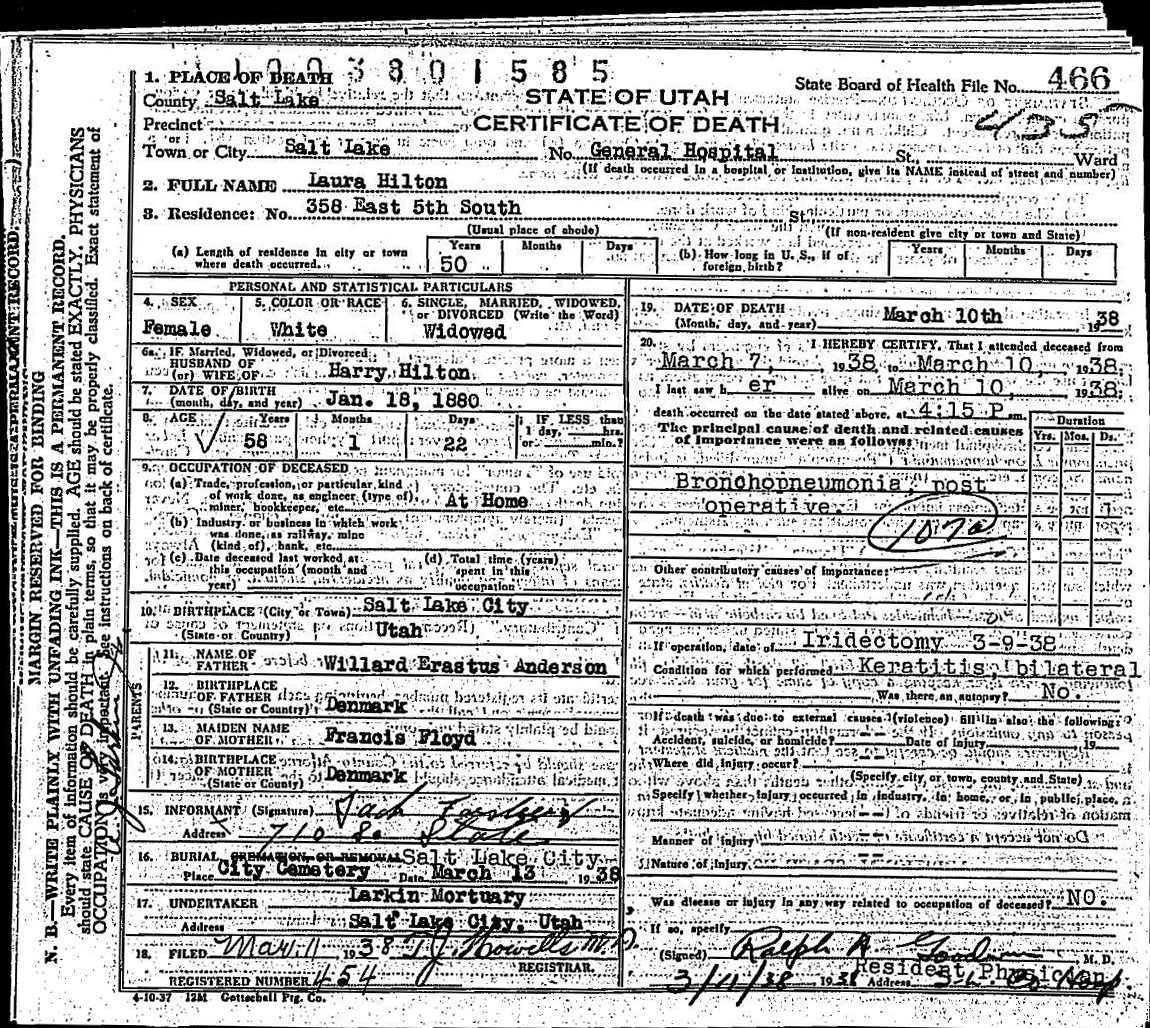 1003801585
1. PLACE OF DEATH
State Board of Health File No. 466
County Salt Lake
STATE OF UTAH
435
Precinct
CERTIFICATE OF DEATH
or
Town or City Salt Lake No. General Hospital St., Ward
(If death occurred in a hospital or institution, give its NAME instead of street and number)
2. FULL NAME Laura Hilton
3. Residence: No. 358 East 5th South St.
(Usual place of abode) (If non-resident give city or town and State)
(a) Length of residence in city or town where death occurred. Years 50 Months Days
(b) How long in U. S., if of foreign birth? Years Months Days
PERSONAL AND STATISTICAL PARTICULARS
4. SEX Female
5. COLOR OR RACE White
6. SINGLE, MARRIED, WIDOWED, or DIVORCED (Write the Word) Widowed
6a. IF Married, Widowed, or Divorced
HUSBAND OF
(or) WIFE OF Harry Hilton
7. DATE OF BIRTH
(month, day, and year) Jan. 18, 1880
8. AGE Years 58 Months 1 Days 22 IF LESS than 1 day, hrs. or min.?
9. OCCUPATION OF DECEASED
(a) Trade, profession, or particular kind
of work done, as engineer (type of),
miner, bookkeeper, etc. At Home
(b) Industry or business in which work
was done, as railway, mine
(kind of), bank, etc.
(c) Date deceased last worked at
this occupation (month and
year)
(d) Total time (years)
spent in this
occupation
10. BIRTHPLACE (City or Town) Salt Lake City
(State or Country) Utah
PARENTS
11. NAME OF FATHER Willard Erastus Anderson
12. BIRTHPLACE OF FATHER
(State or Country) Denmark
13. MAIDEN NAME OF MOTHER Francis Floyd
14. BIRTHPLACE OF MOTHER
(State or County) Denmark
15. INFORMANT (Signature)
Address 710 So. State
16. BURIAL, CREMATION, OR REMOVAL Salt Lake City
Place City Cemetery Date March 13 1938
17. UNDERTAKER Larkin Mortuary
Address Salt Lake City, Utah
18. FILED Mar. 11 1938 T. J. Howells M. D.
REGISTRAR.
REGISTERED NUMBER 454
4-10-37 12M Gottschall Ptg. Co.
19. DATE OF DEATH
(Month, day, and year) March 10th 1938
20. I HEREBY CERTIFY, That I attended deceased from
March 7, 1938 to March 10, 1938.
I last saw her alive on March 10, 1938
death occurred on the date stated above, at 4:15 P m.
The principal cause of death and related causes
of importance were as follows:
Duration
Yrs. Mos. Ds.
Bronchopneumonia, post
operative. 1
107a
Other contributory causes of importance:
If operation, date of Iridectomy 3-9-38
Condition for which performed Keratitis, bilateral
Was there an autopsy? No.
If death was due to external causes (violence) fill in also the following:
Accident, suicide, or homicide? -- Date of injury 19
Where did injury occur? --
(Specify city or town, county and State)
Specify whether injury occurred in industry, in home, or in public place.
--
Manner of injury --
Nature of injury --
Was disease or injury in any way related to occupation of deceased? NO.
If so, specify
(Signed) Ralph A. Goodman M. D.
Resident Physician
3/11/38 1938 Address S. L. Co. Hosp.
MARGIN RESERVED FOR BINDING
N. B.—WRITE PLAINLY WITH UNFADING INK—THIS IS A PERMANENT RECORD.
Every item of information should be carefully supplied. AGE should be stated EXACTLY. PHYSICIANS
should state CAUSE OF DEATH in plain terms, so that it may be properly classified. Exact statement of
OCCUPATION is very important. See instructions on back of certificate.